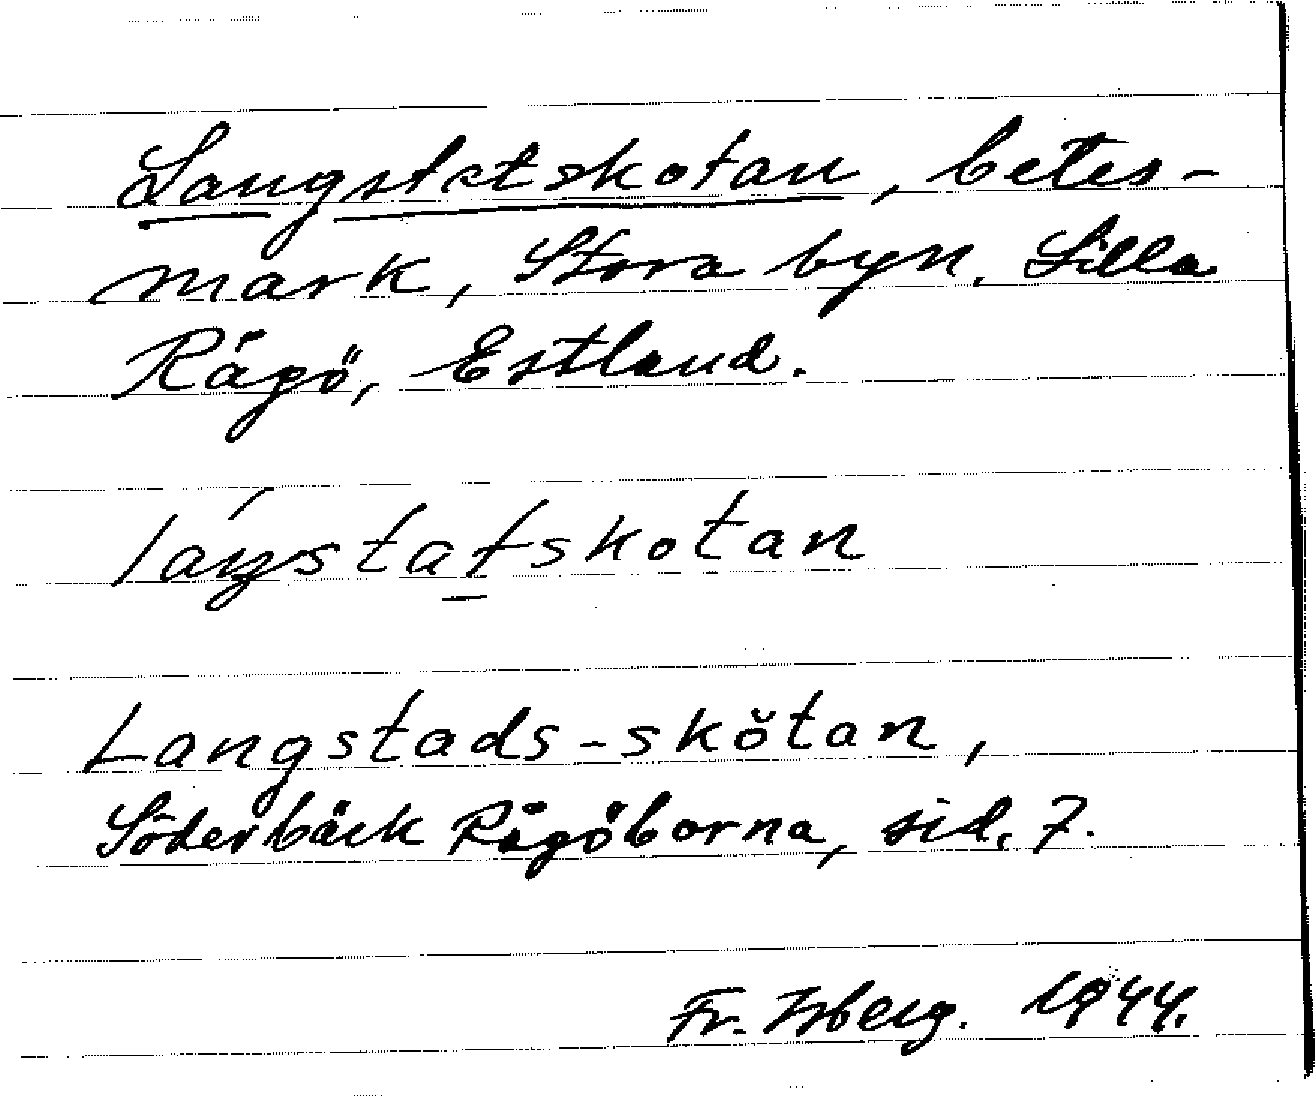 Langstatskotan, betes-
mark, Stora byn, Lilla
Rågö, Estland.
láŋstatskotan
Langstads-skŏtan,
Söderbäck Rågöborna, sid. 7.
Fr. Isberg. 1944.